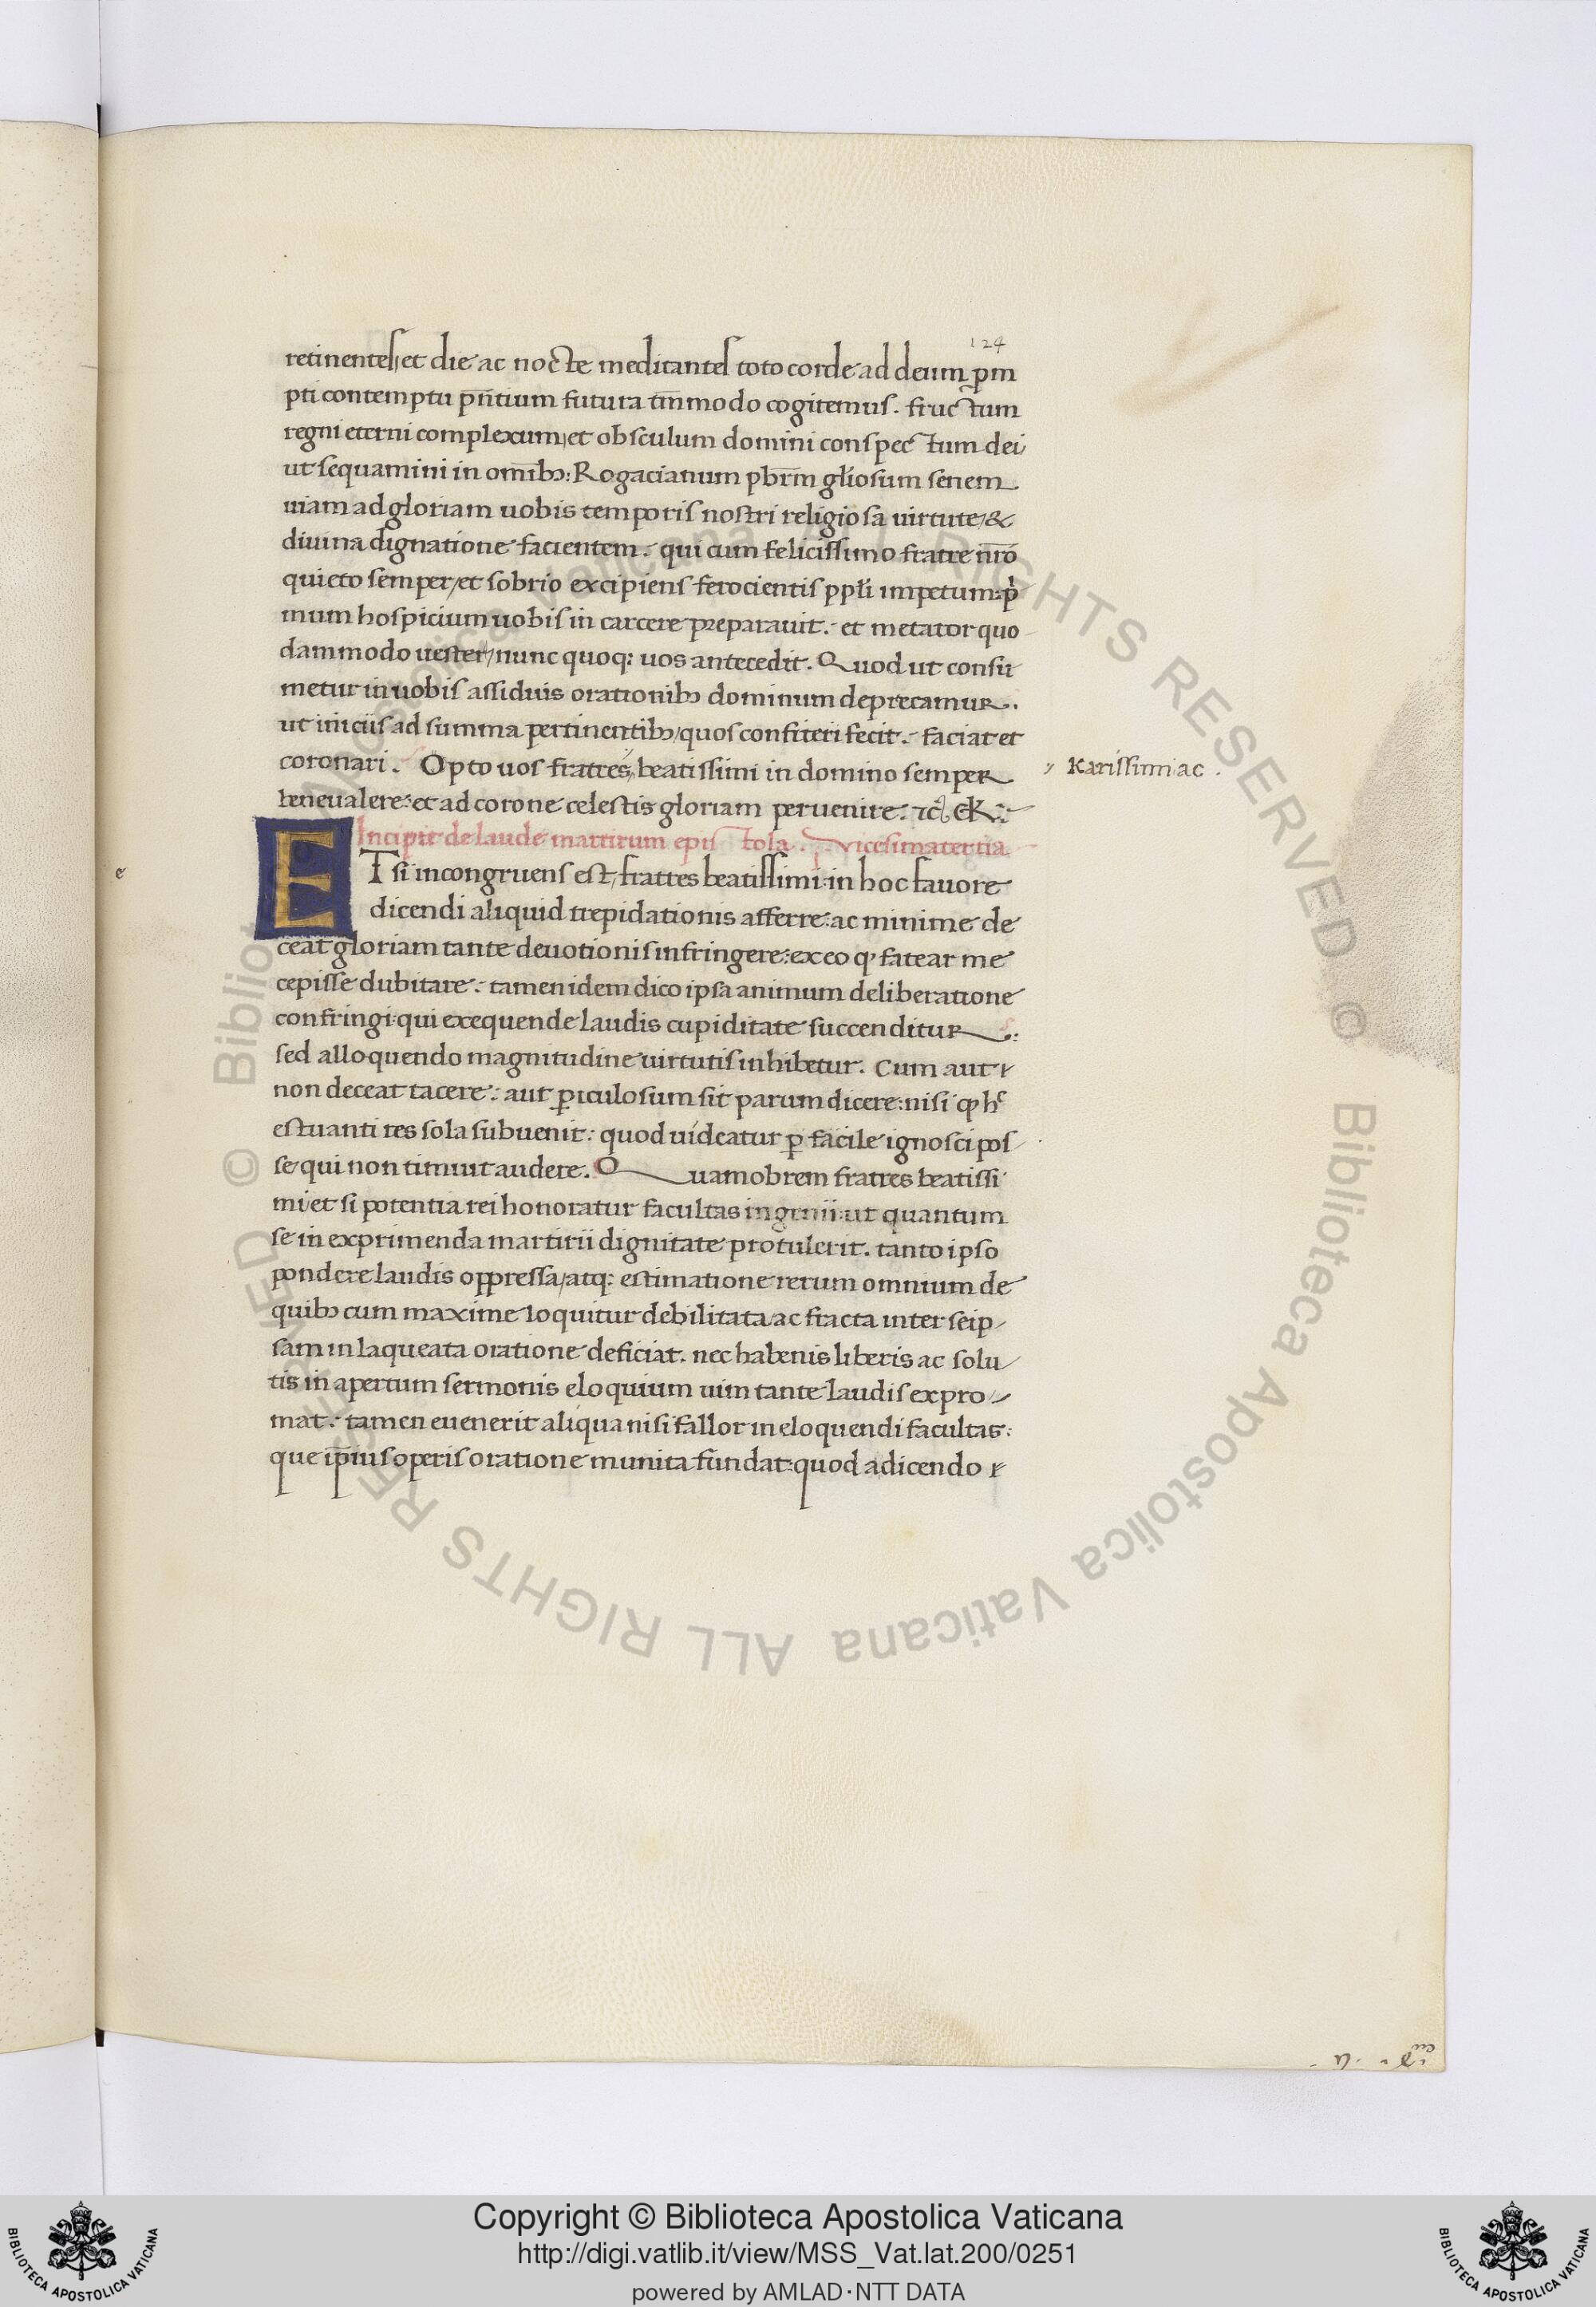 124
retinentes, et die ac nocte meditantes toto corde ad deum ꝓm
pti contemptu p̄ntium futura tm̄modo cogitemus. fructum
regni eterni complexum, et obsculum domini conspectum dei
ut sequamini in om̄ibꝫ: Rogacianum pbr̄m gl̄iosum senem
uiam ad gloriam uobis temporis nostri religiosa uirtute, &
diuina dignatione facientem. qui cum felicissimo fratre nr̄o
quieto semper, et sobrio excipiens ferocientis ppl̄i impetum: p
mum hospicium uobis in carcere preparauit. et metator quo
dammodo uester, nunc quoq: uos antecedit. Quod ut consu
metur in uobis assiduis orationibꝫ dominum deprecamur.
ut iniciis ad summa pertinentibꝫ, quos confiteri fecit. faciat et
coronari. Opto uos fratres, beatissimi in domino semper
Karissimi ac.
bene ualere: et ad corone celestis gloriam peruenire.
Incipit de laude martirum epistola. Vicesimatertia
ETsi incongruens est, fratres beatissimi: in hoc fauore
dicendi aliquid trepidationis afferre: ac minime de
e
ceat gloriam tante deuotionis infringere: ex eo ꝙ fatear me
cepisse dubitare. tamen idem dico ipsa animum deliberatione
confringi: qui exequende laudis cupiditate succenditur:
sed alloquendo magnitudine uirtutis inhibetur. Cum aut
non deceat tacere. aut ꝑiculosum sit parum dicere: nisi ꝙ h͡
estuanti res sola subuenit: quod uideatur ꝑ facile ignosci pos
se qui non timuit audere. Quamobrem fratres beatissi
mi et si potentia rei honoratur facultas ingenii: ut quantum
se in exprimenda martirii dignitate protulerit. tanto ipso
pondere laudis oppressa, atq: estimatione rerum omnium de
quibꝫ cum maxime loquitur debilitata, ac fracta inter seip
sam in laqueata oratione deficiat. nec habenis liberis ac solu
tis in apertum sermonis eloquium uim tante laudis expro
mat. tamen euenerit aliqua nisi fallor in eloquendi facultas:
que ip̄ius operis oratione munita fundat: quod adicendo
Copyright © Biblioteca Apostolica Vaticana
http://digi.vatlib.it/view/MSS_Vat.lat.200/0251
powered by AMLAD·NTT DATA